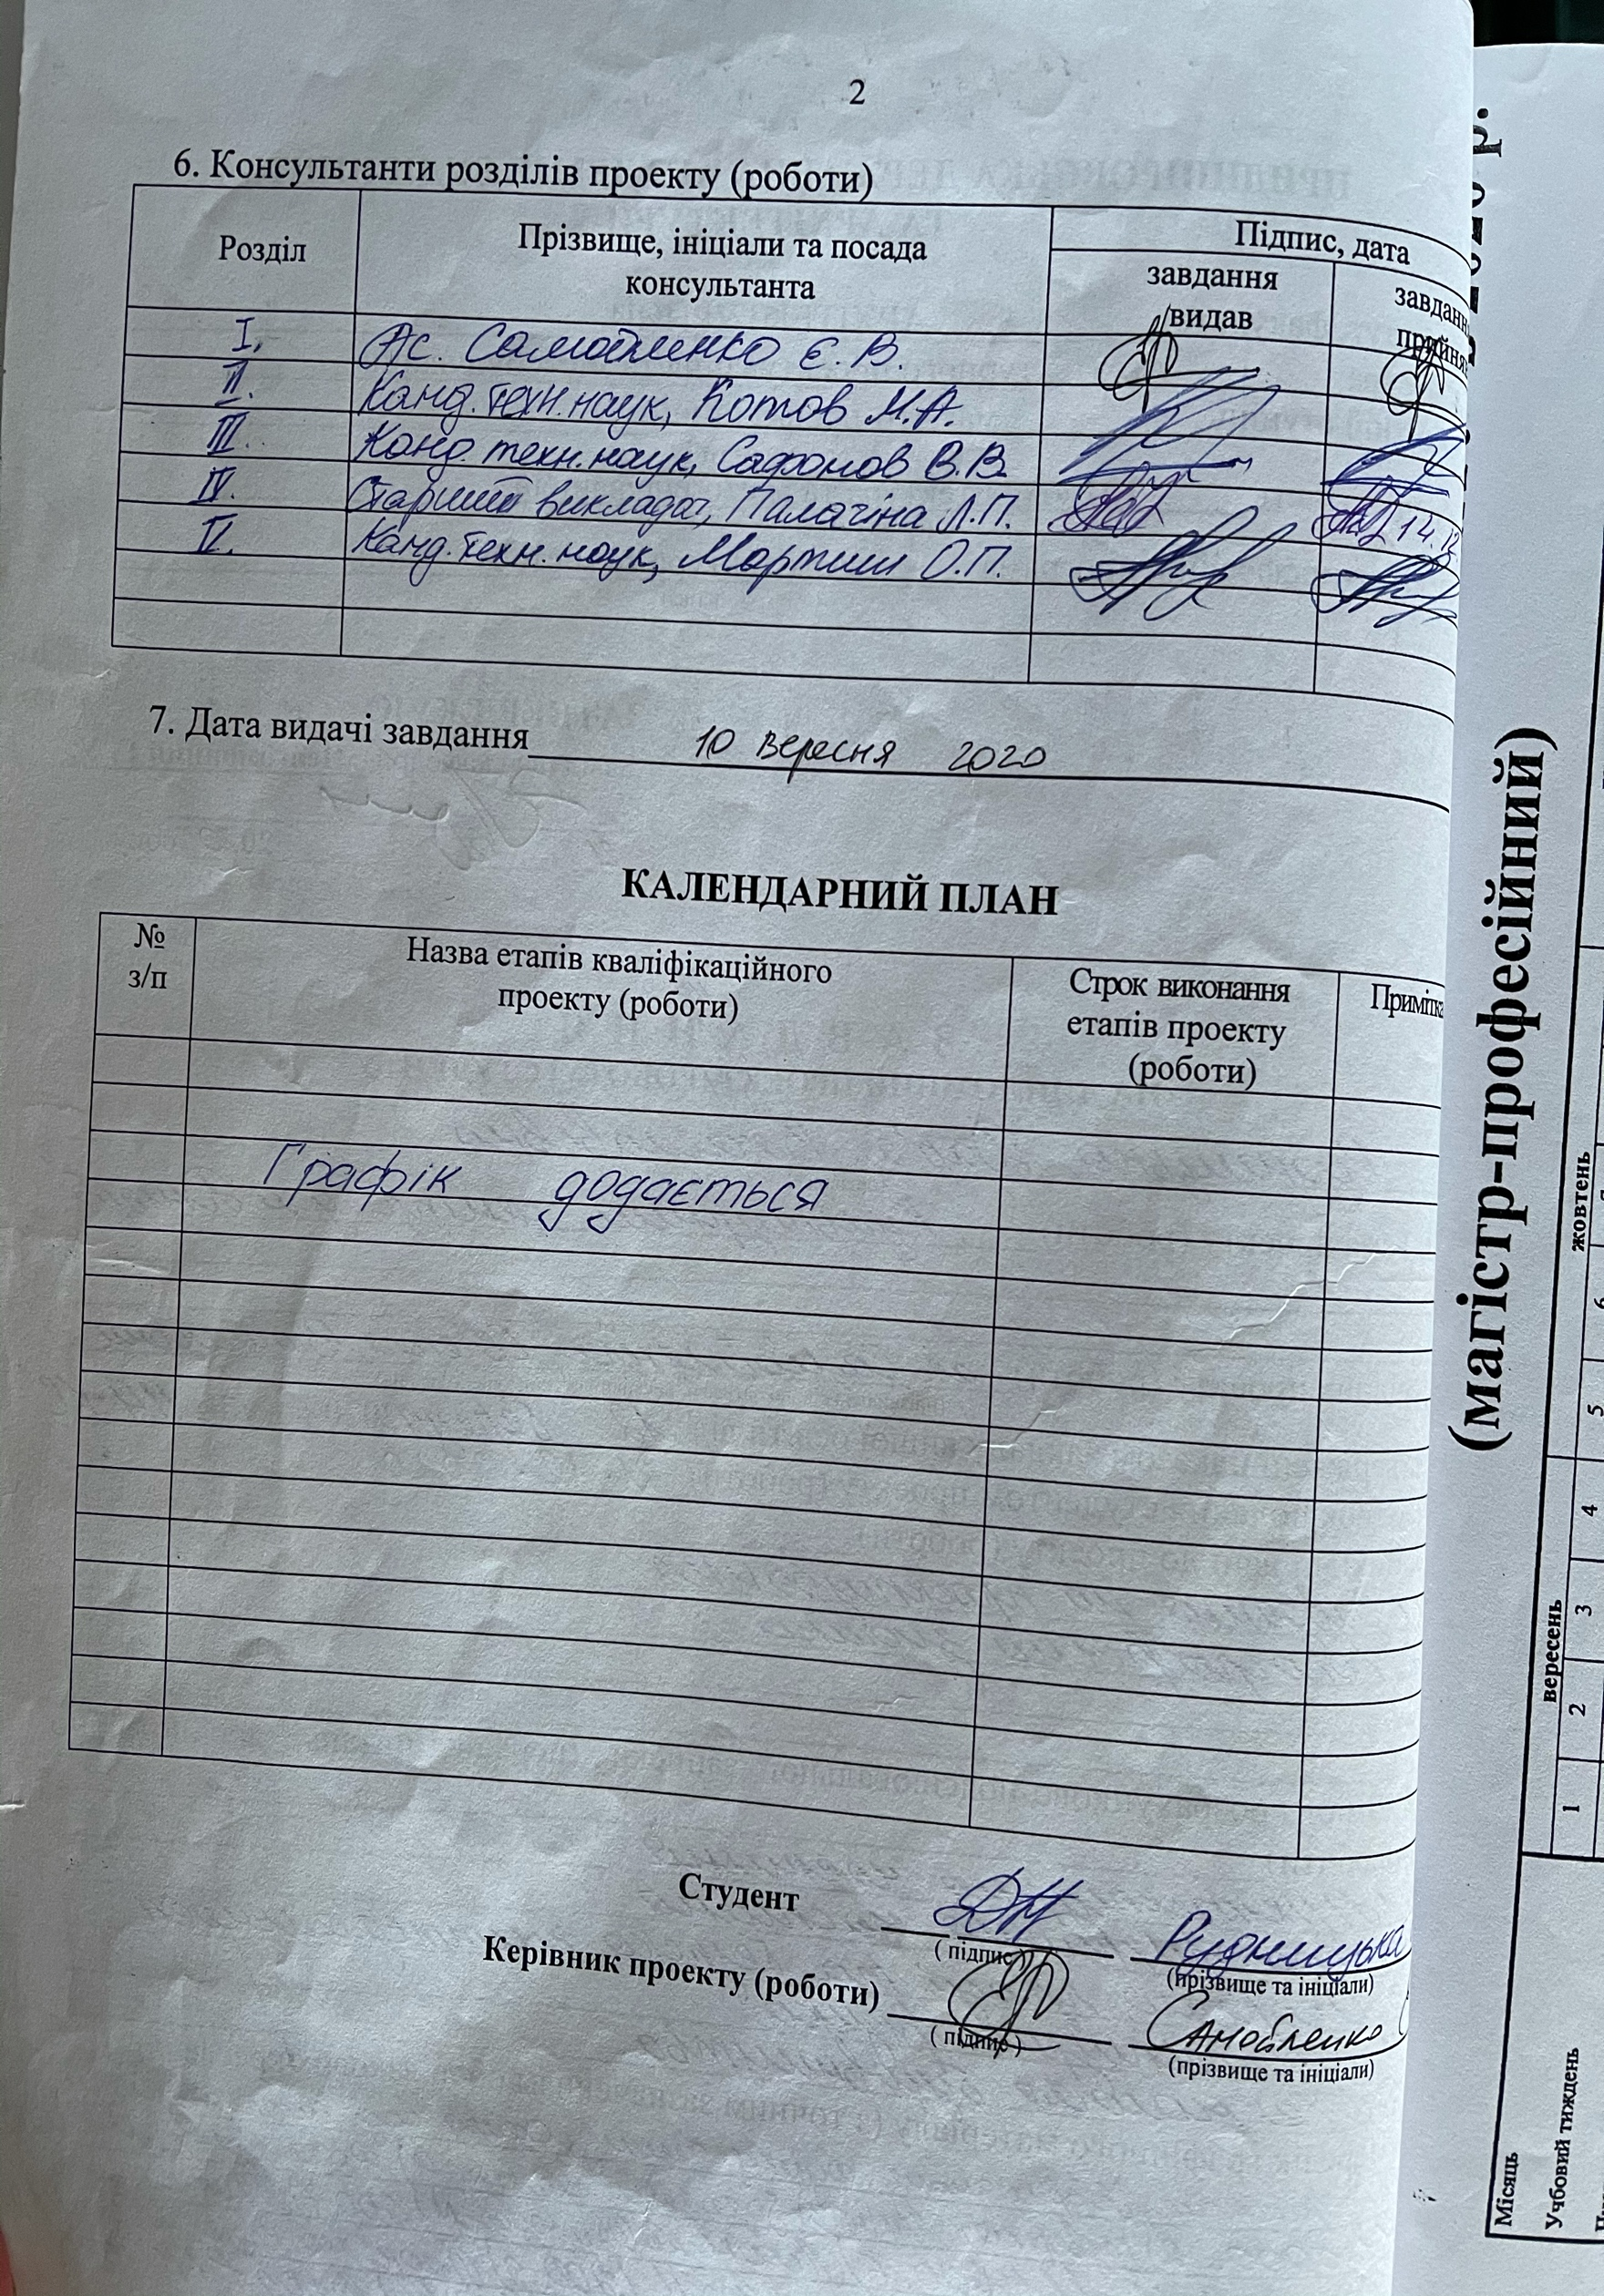 2
6. Консультанти розділів проекту (роботи)
Розділ
Прізвище, ініціали та посада
консультанта
Підпис, дата
завдання
видав
завданн
прийня
I.
Ас. Самойленко Є. В.
II.
Канд. техн. наук, Котов М.А.
III.
Канд. техн. наук, Сафонов В.В.
IV.
Старший викладач, Палагіна Л.П.
14.12
V.
Канд. техн. наук, Мартиш О.П.
7. Дата видачі завдання 10 вересня 2020
КАЛЕНДАРНИЙ ПЛАН
№
з/п
Назва етапів кваліфікаційного
проекту (роботи)
Строк виконання
етапів проекту
(роботи)
Примітка
Графік додається
Студент
Рудницька
( підпис )
(прізвище та ініціали)
Керівник проекту (роботи)
Самойленко
( підпис )
(прізвище та ініціали)
2020 р.
(магістр-професійний)
Місяць
вересень
жовтень
Учбовий тиждень
1 2 3 4 5 6